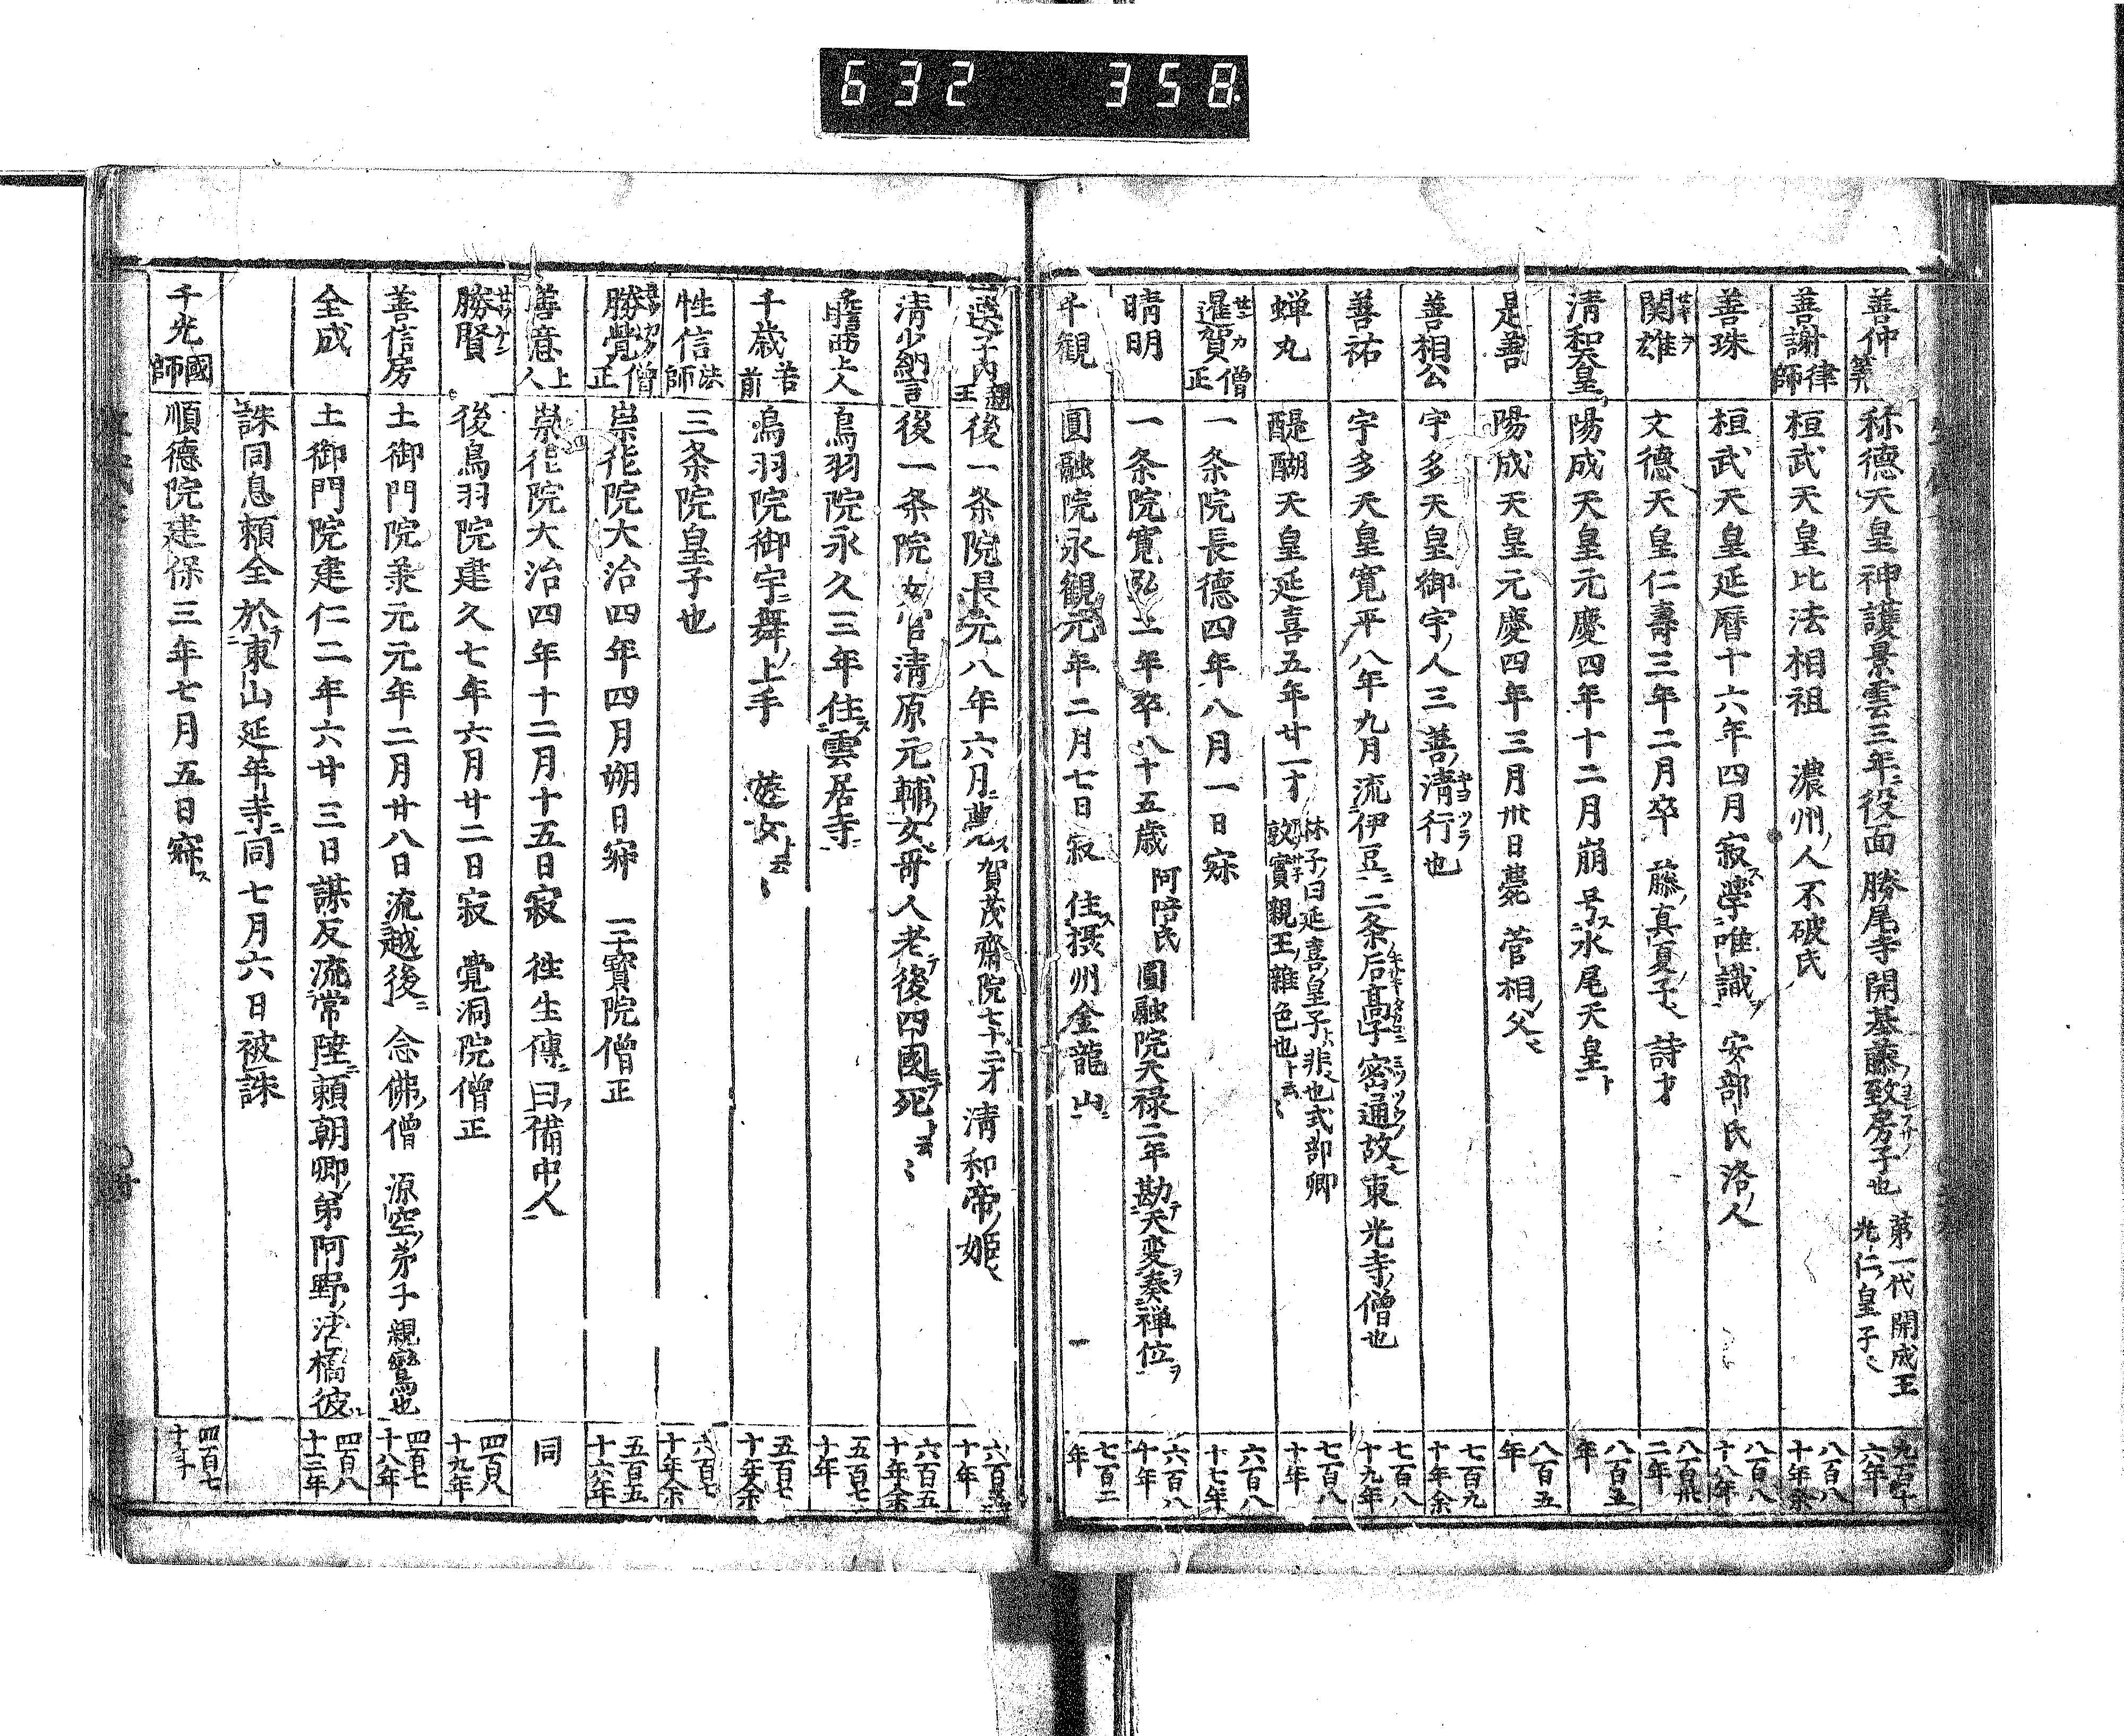 632 358.
善仲 称德天皇神護景雲三年役面勝尾寺開基藤致房子也 第一代開成王光仁皇子
善謝律師 桓武天皇比法相祖 濃州人不破氏 八百八十年余
善珠 桓武天皇延暦十六年四月寂學唯識 安部氏洛人 八百八十八年
関雄 文德天皇仁壽三年二月卒 藤真夏子 詩才 八百卅二年
清和天皇 陽成天皇元慶四年十二月崩号水尾天皇 八百五年
是善 陽成天皇元慶四年三月卅日薨 菅相父 八百五年
善相公 宇多天皇御宇人三善清行也 七百九十年余
善祐 宇多天皇寛平八年九月流伊豆二条后高子密通故 東光寺僧也 七百八十九年
蝉丸 醍醐天皇延喜五年廿一才 妹子曰延喜皇子非也式部卿敦實親王雑色也 七百八十年
暹賀僧正 一条院長德四年八月一日寂 六百八十七年
晴明 一条院寛弘二年卒八十五歳 阿陪氏 圓融院天禄二年勘天変奏禅位 六百八十年
千観 圓融院永観元年二月七日寂 住摂州金龍山 七百二年
選子内親王 後一条院長元八年六月薨 賀茂齋院七十二才 清和帝姫
清少納言 後一条院女官清原元輔女哥人老後四國死 六百五十年余
瞻西上人 鳥羽院永久三年住雲居寺 五百七十年
千歳若前 鳥羽院御宇舞上手 遊女 五百七十年余
性信法師 三条院皇子也 六百七十年余
勝覺僧正 崇徳院大治四年四月朔日寂 三寶院僧正 五百五十六年
善意上人 崇徳院大治四年十二月十五日寂 往生傳曰備中人 同
勝賢 後鳥羽院建久七年六月廿二日寂 覺洞院僧正 四百八十九年
善信房 土御門院兼元元年二月廿八日流越後 念佛僧 源空弟子親鸞也 四百七十八年
全成 土御門院建仁二年六廿三日謀反流常陸頼朝卿弟阿野法橋彼 四百八十二年
誅同息頼全於東山延年寺同七月六日被誅
千光國師 順德院建保三年七月五日寂 四百七十